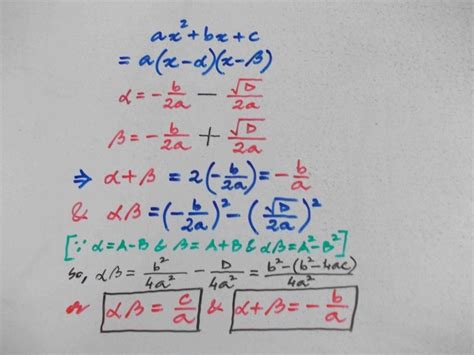 ax² + bx + c
= a(x-α)(x-β)
α = -b/2a - √D/2a
β = -b/2a + √D/2a
⇒ α + β = 2(-b/2a) = -b/a
& αβ = (-b/2a)² - (√D/2a)²
[∵ α = A-B & β = A+B & αβ = A²-B²]
So, αβ = b²/4a² - D/4a² = b²-(b²-4ac)/4a²
or αβ = c/a & α+β = -b/a